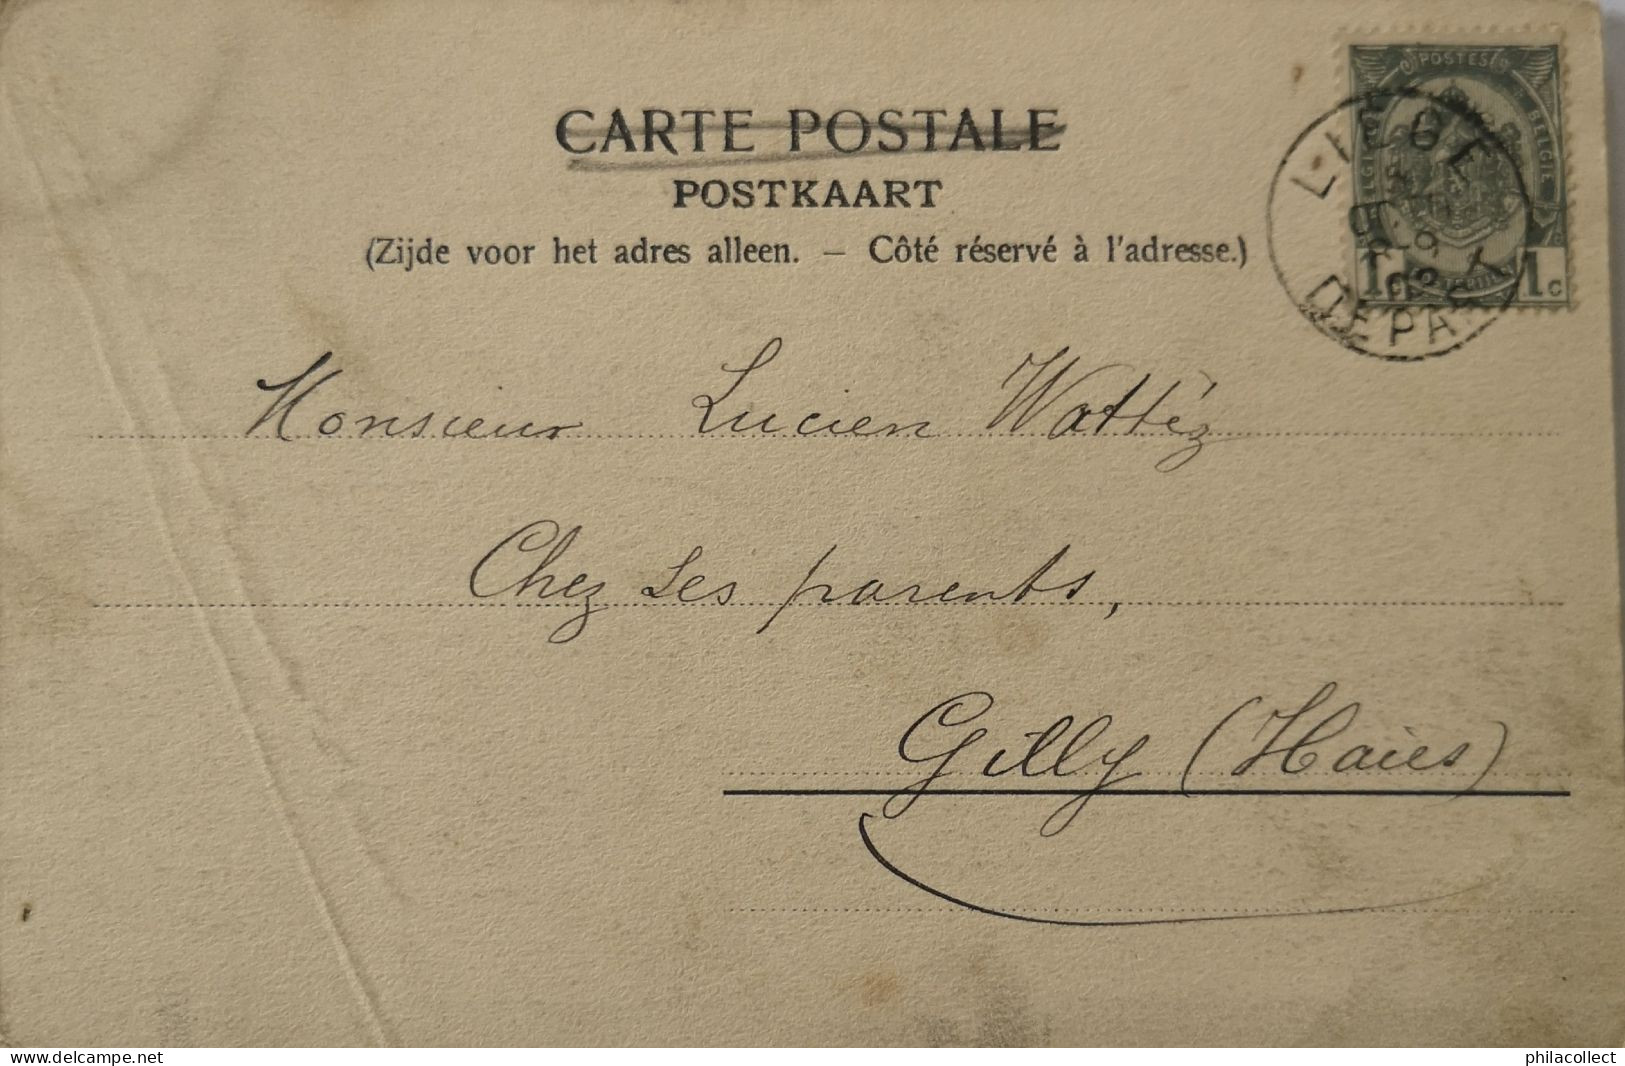 CARTE POSTALE
POSTKAART
(Zijde voor het adres alleen. – Côté réservé à l'adresse.)
POSTES
BELGIE
1c
1c
LIEGE
DEPART
Monsieur Lucien Wattéz
Chez ses parents,
Gilly (Haies)
delcampe.net
philacollect